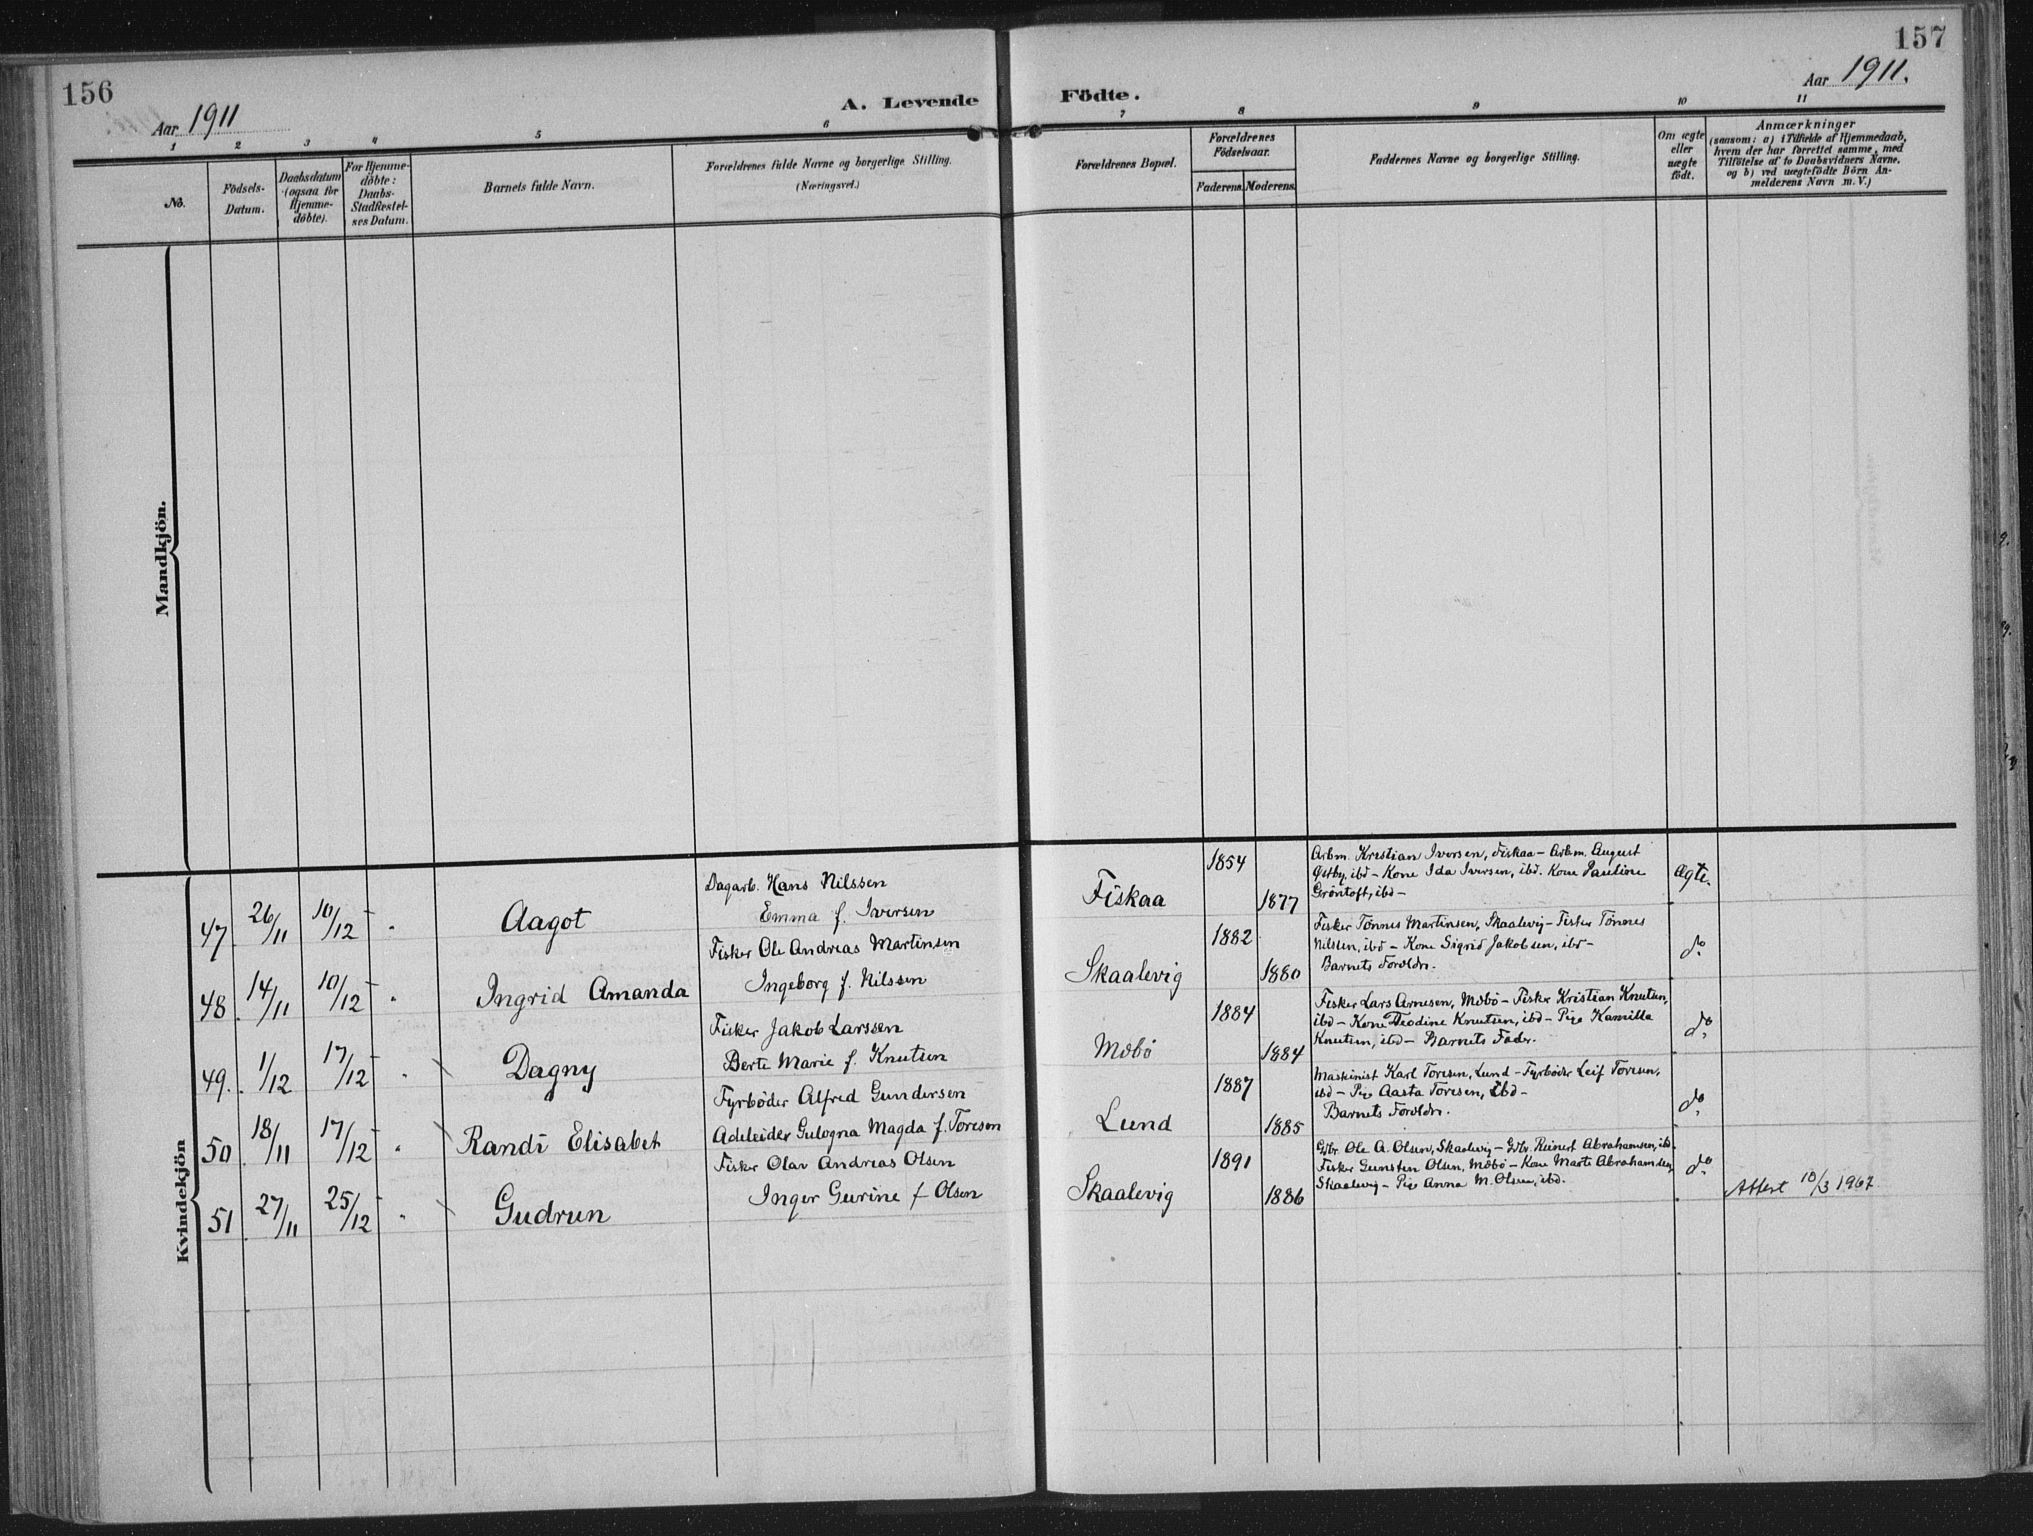 156
Aar 1911
A. Levende
1 2 3 4 5 6
No.
Födsels-
Datum.
Daabsdatum
(ogsaa for
Hjemme-
döbte).
For Hjemme-
döbte:
Daabs-
Stadfestel-
ses Datum.
Barnets fulde Navn.
Forældrenes fulde Navne og borgerlige Stilling.
(Næringsvei.)
Mandkjön.
Kvindekjön
47 26/11 10/12 - " Aagot
Dagarb. Hans Nilssen
Emma f. Iversen
48 14/11 10/12 - " Ingrid Amanda
Fisker Ole Andreas Martinsen
Ingeborg f. Nilssen
49. 1/12 17/12 - " Dagny
Fisker Jakob Larssen
Berte Marie f. Knutsen
50 18/11 17/12 - " Randi Elisabet
Fyrböder Alfred Gundersen
Adeleider Gulogna Magda f. Toresen
51 27/11 25/12 - " Gudrun
Fisker Olav Andreas Olsen
Inger Gurine f Olsen
157
Aar 1911.
Födte.
7 8 9 10 11
Forældrenes Bopæl.
Forældrenes
Födselsaar.
Faderens. Moderens.
Faddernes Navne og borgerlige Stilling.
Om ægte
eller
uægte
födt.
Anmærkninger
(saasom: a) i Tilfælde af Hjemmedaab,
hvem der har forrettet samme, med
Tilföielse af to Daabsvidners Navne.
og b) ved uægtefödte Börn An-
melderens Navn m. V.)
Fiskaa 1854 1877
Arbm. Kristian Iversen, Fiskaa - Arbm. August
Østby, ibd - Kone Ida Iversen, ibd. Kone Pauline
Gröntoft, ibd -
Ægte.
Skaalevig 1882 1880
Fisker Tönnes Martinsen, Skaalevig - Fisker Tönnes
Nilssen, ibd - Kone Sigrid Jakobsen, ibd -
Barnets Forældr.
do
Mæbö 1884 1884
Fisker Lars Arnesen, Mæbö - Fisker Kristian Knutsen,
ibd - Kone Teodine Knutsen, ibd - Pige Kamilla
Knutsen, ibd - Barnets Fader.
do
Lund 1887 1885
Maskinist Karl Toresen, Lund - Fyrböder Leif Toresen,
ibd - Pige Aasta Toresen, ibd -
Barnets Forældr.
do
Skaalevig 1891 1886
Gbr. Ole A. Olsen, Skaalevig - Gbr. Reinert Abrahamsen, ibd
Fisker Gunsten Olsen, Mæbö - Kone Marte Abrahamsen,
Skaalevig - Pige Anna M. Olsen, ibd.
do
Attest 10/3 1967